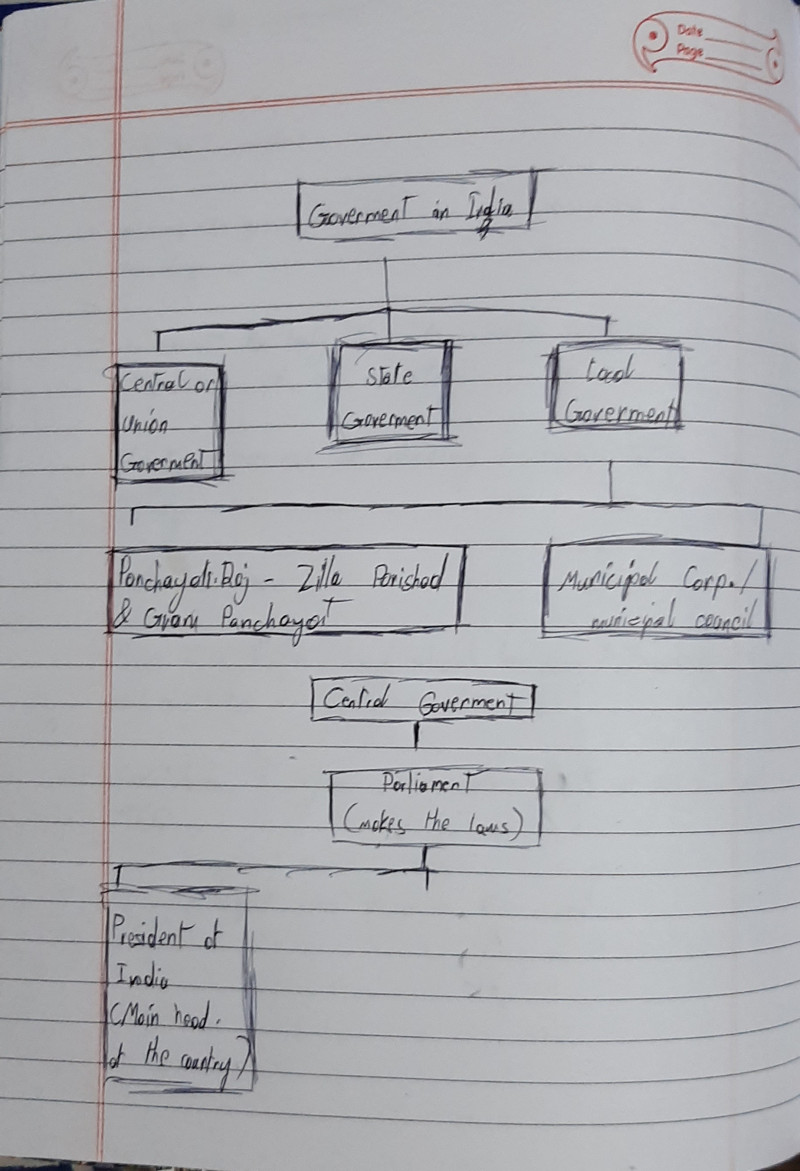 Date
Page
Goverment in India
Central or
Union
Goverment
State
Goverment
Local
Goverment
Panchayati.Raj - Zilla Parishad
& Gram Panchayat
Municipal Corp./
municipal council
Central Goverment
Parliament
(makes the laws)
President of
India
(Main head.
of the country)